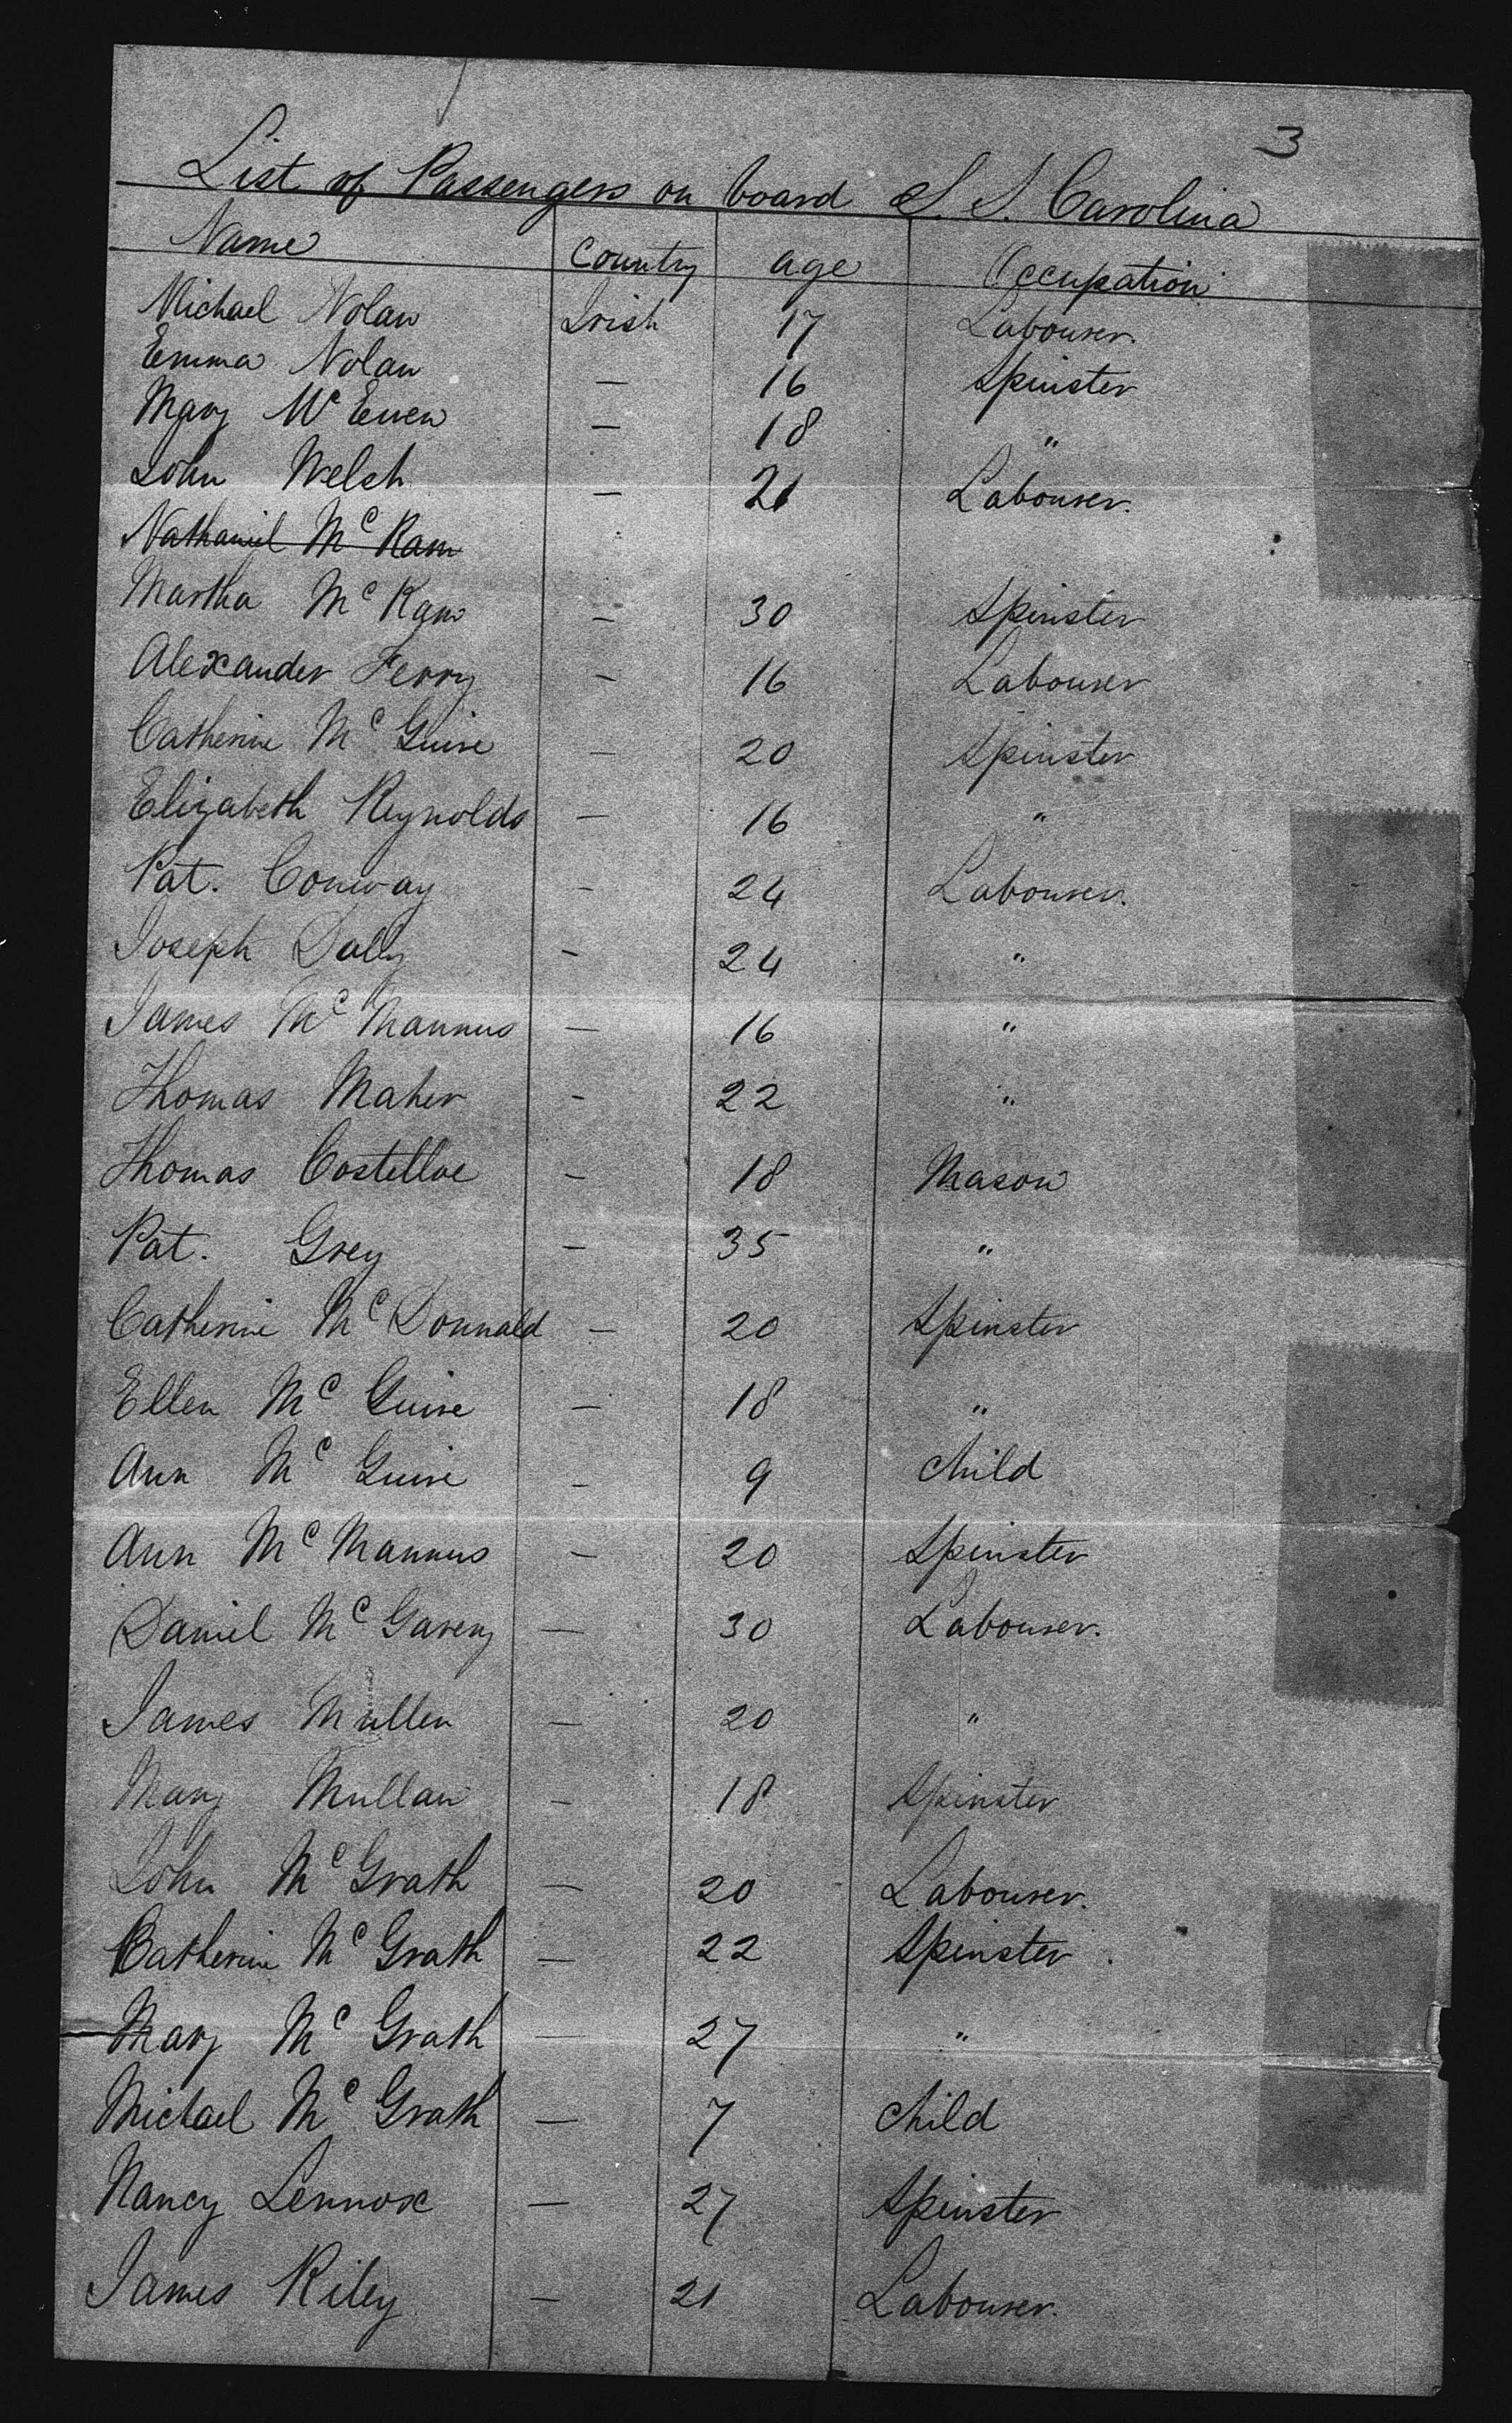 3
List of Passengers on board S. S. Carolina
Name Country age Occupation
Michael Nolan Irish 17 Labourer.
Emma Nolan — 16 Spinster
Mary Mc Ewen — 18 "
John Welsh — 21 Labourer.
Nathaniel Mc Kam
Martha Mc Kam — 30 Spinster
Alexander Ferry — 16 Labourer
Catherine Mc Guire — 20 Spinster
Elizabeth Reynolds — 16 "
Pat. Conway - 24 Labourer.
Joseph Dally - 24 "
James Mc Mannus — 16 "
Thomas Maher - 22 "
Thomas Costelloe — 18 Mason
Pat. Grey — 35 "
Catherine Mc Donnald — 20 Spinster
Ellen Mc Guire — 18 "
Ann Mc Guire - 9 Child
Ann Mc Mannus — 20 Spinster
Daniel Mc Garey — 30 Labourer.
James Mullen — 20 "
Mary Mullan — 18 Spinster
John Mc Grath — 20 Labourer.
Catherine Mc Grath — 22 Spinster
Mary Mc Grath — 27 "
Michael Mc Grath — 7 Child
Nancy Lennox — 27 Spinster
James Riley — 21 Labourer.